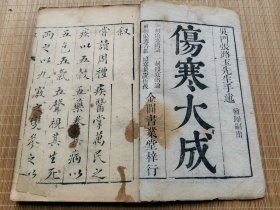 吳門張路玉先生手述
傷寒大成
金閶書業堂梓行
敘
嘗讀周禮疾醫掌萬民之
疾以五穀五藥病以
五氣五聲視其生死
兩之以九竅變參之以